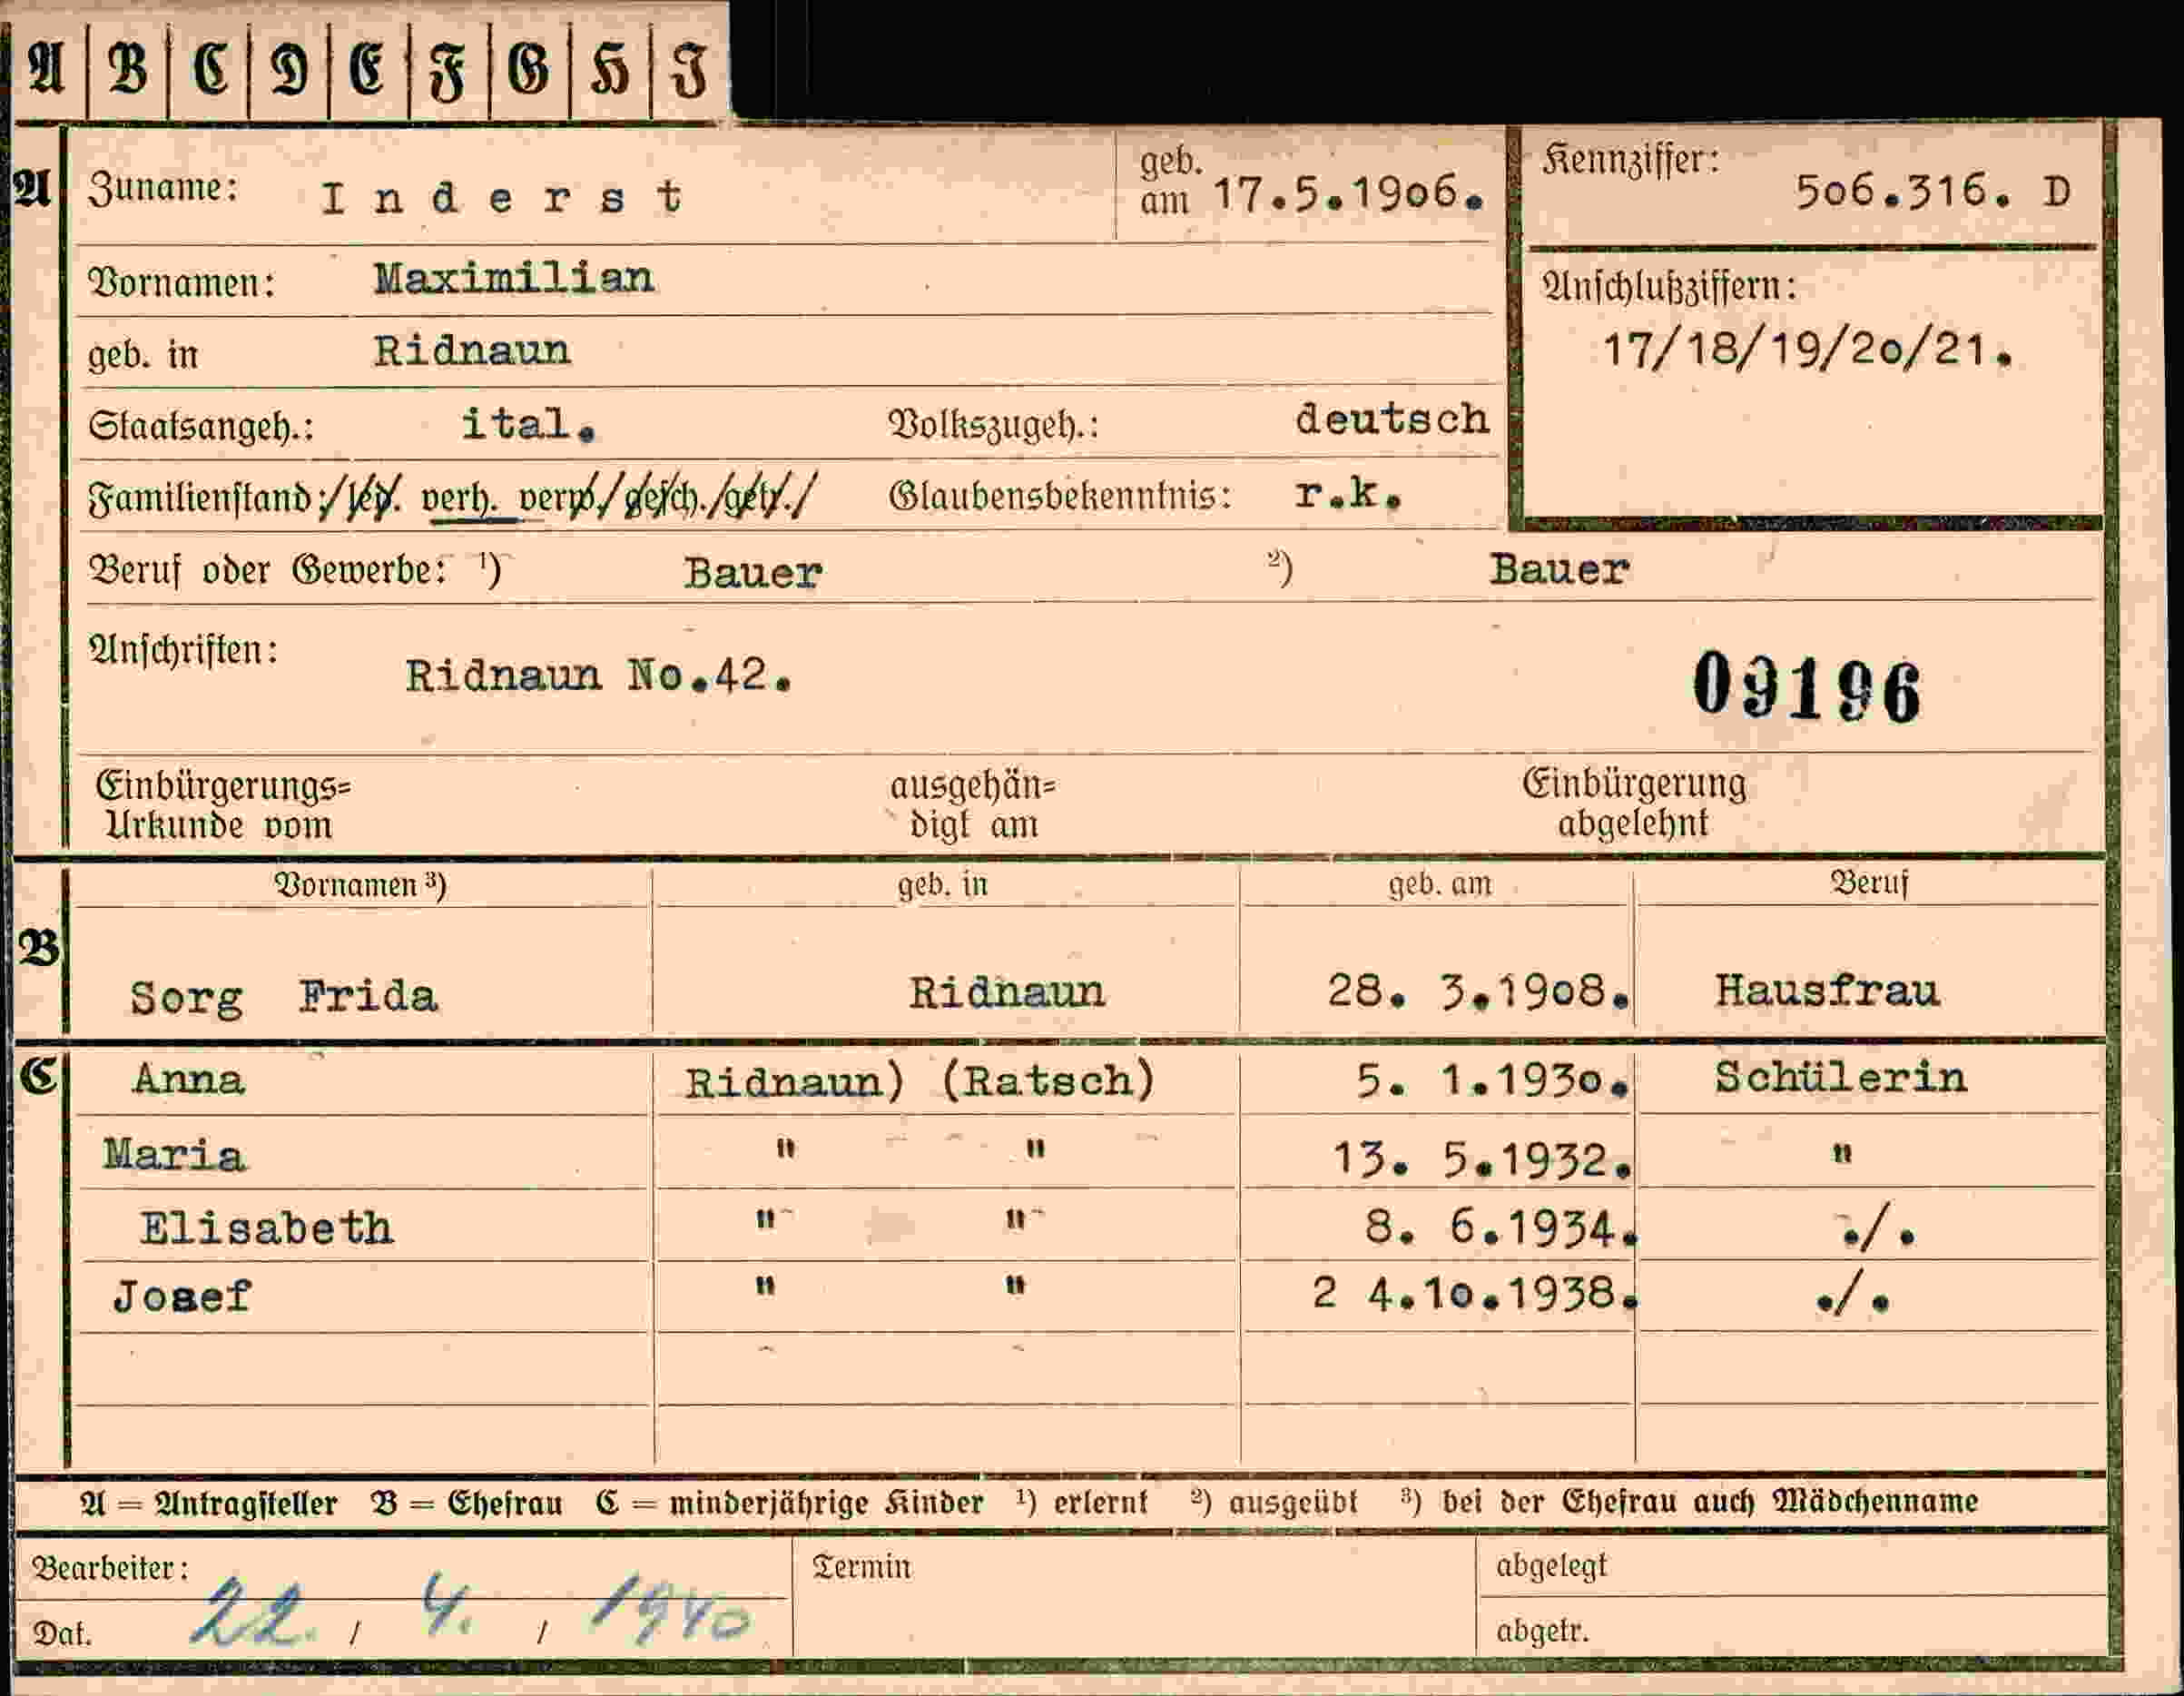 A B C D E F G H I
A Zuname: Inderst geb. am 17.5.1906. Kennziffer: 506.316. D
Vornamen: Maximilian Anschlußziffern:
geb. in Ridnaun 17/18/19/20/21.
Staatsangeh.: ital. Volkszugeh.: deutsch
Familienstand:/led. verh. verw./gesch./getr./ Glaubensbekenntnis: r.k.
Beruf oder Gewerbe: ¹) Bauer ²) Bauer
Anschriften: Ridnaun No.42. 09196
Einbürgerungs= ausgehän= Einbürgerung
Urkunde vom digt am abgelehnt
Vornamen ³) geb. in geb. am Beruf
B Sorg Frida Ridnaun 28. 3.1908. Hausfrau
C Anna Ridnaun) (Ratsch) 5. 1.1930. Schülerin
Maria " " 13. 5.1932. "
Elisabeth " " 8. 6.1934. ./.
Josef " " 2 4.10.1938. ./.
A = Antragsteller B = Ehefrau C = minderjährige Kinder ¹) erlernt ²) ausgeübt ³) bei der Ehefrau auch Mädchenname
Bearbeiter: Termin abgelegt
Dat. 22. / 4. / 1940 abgetr.